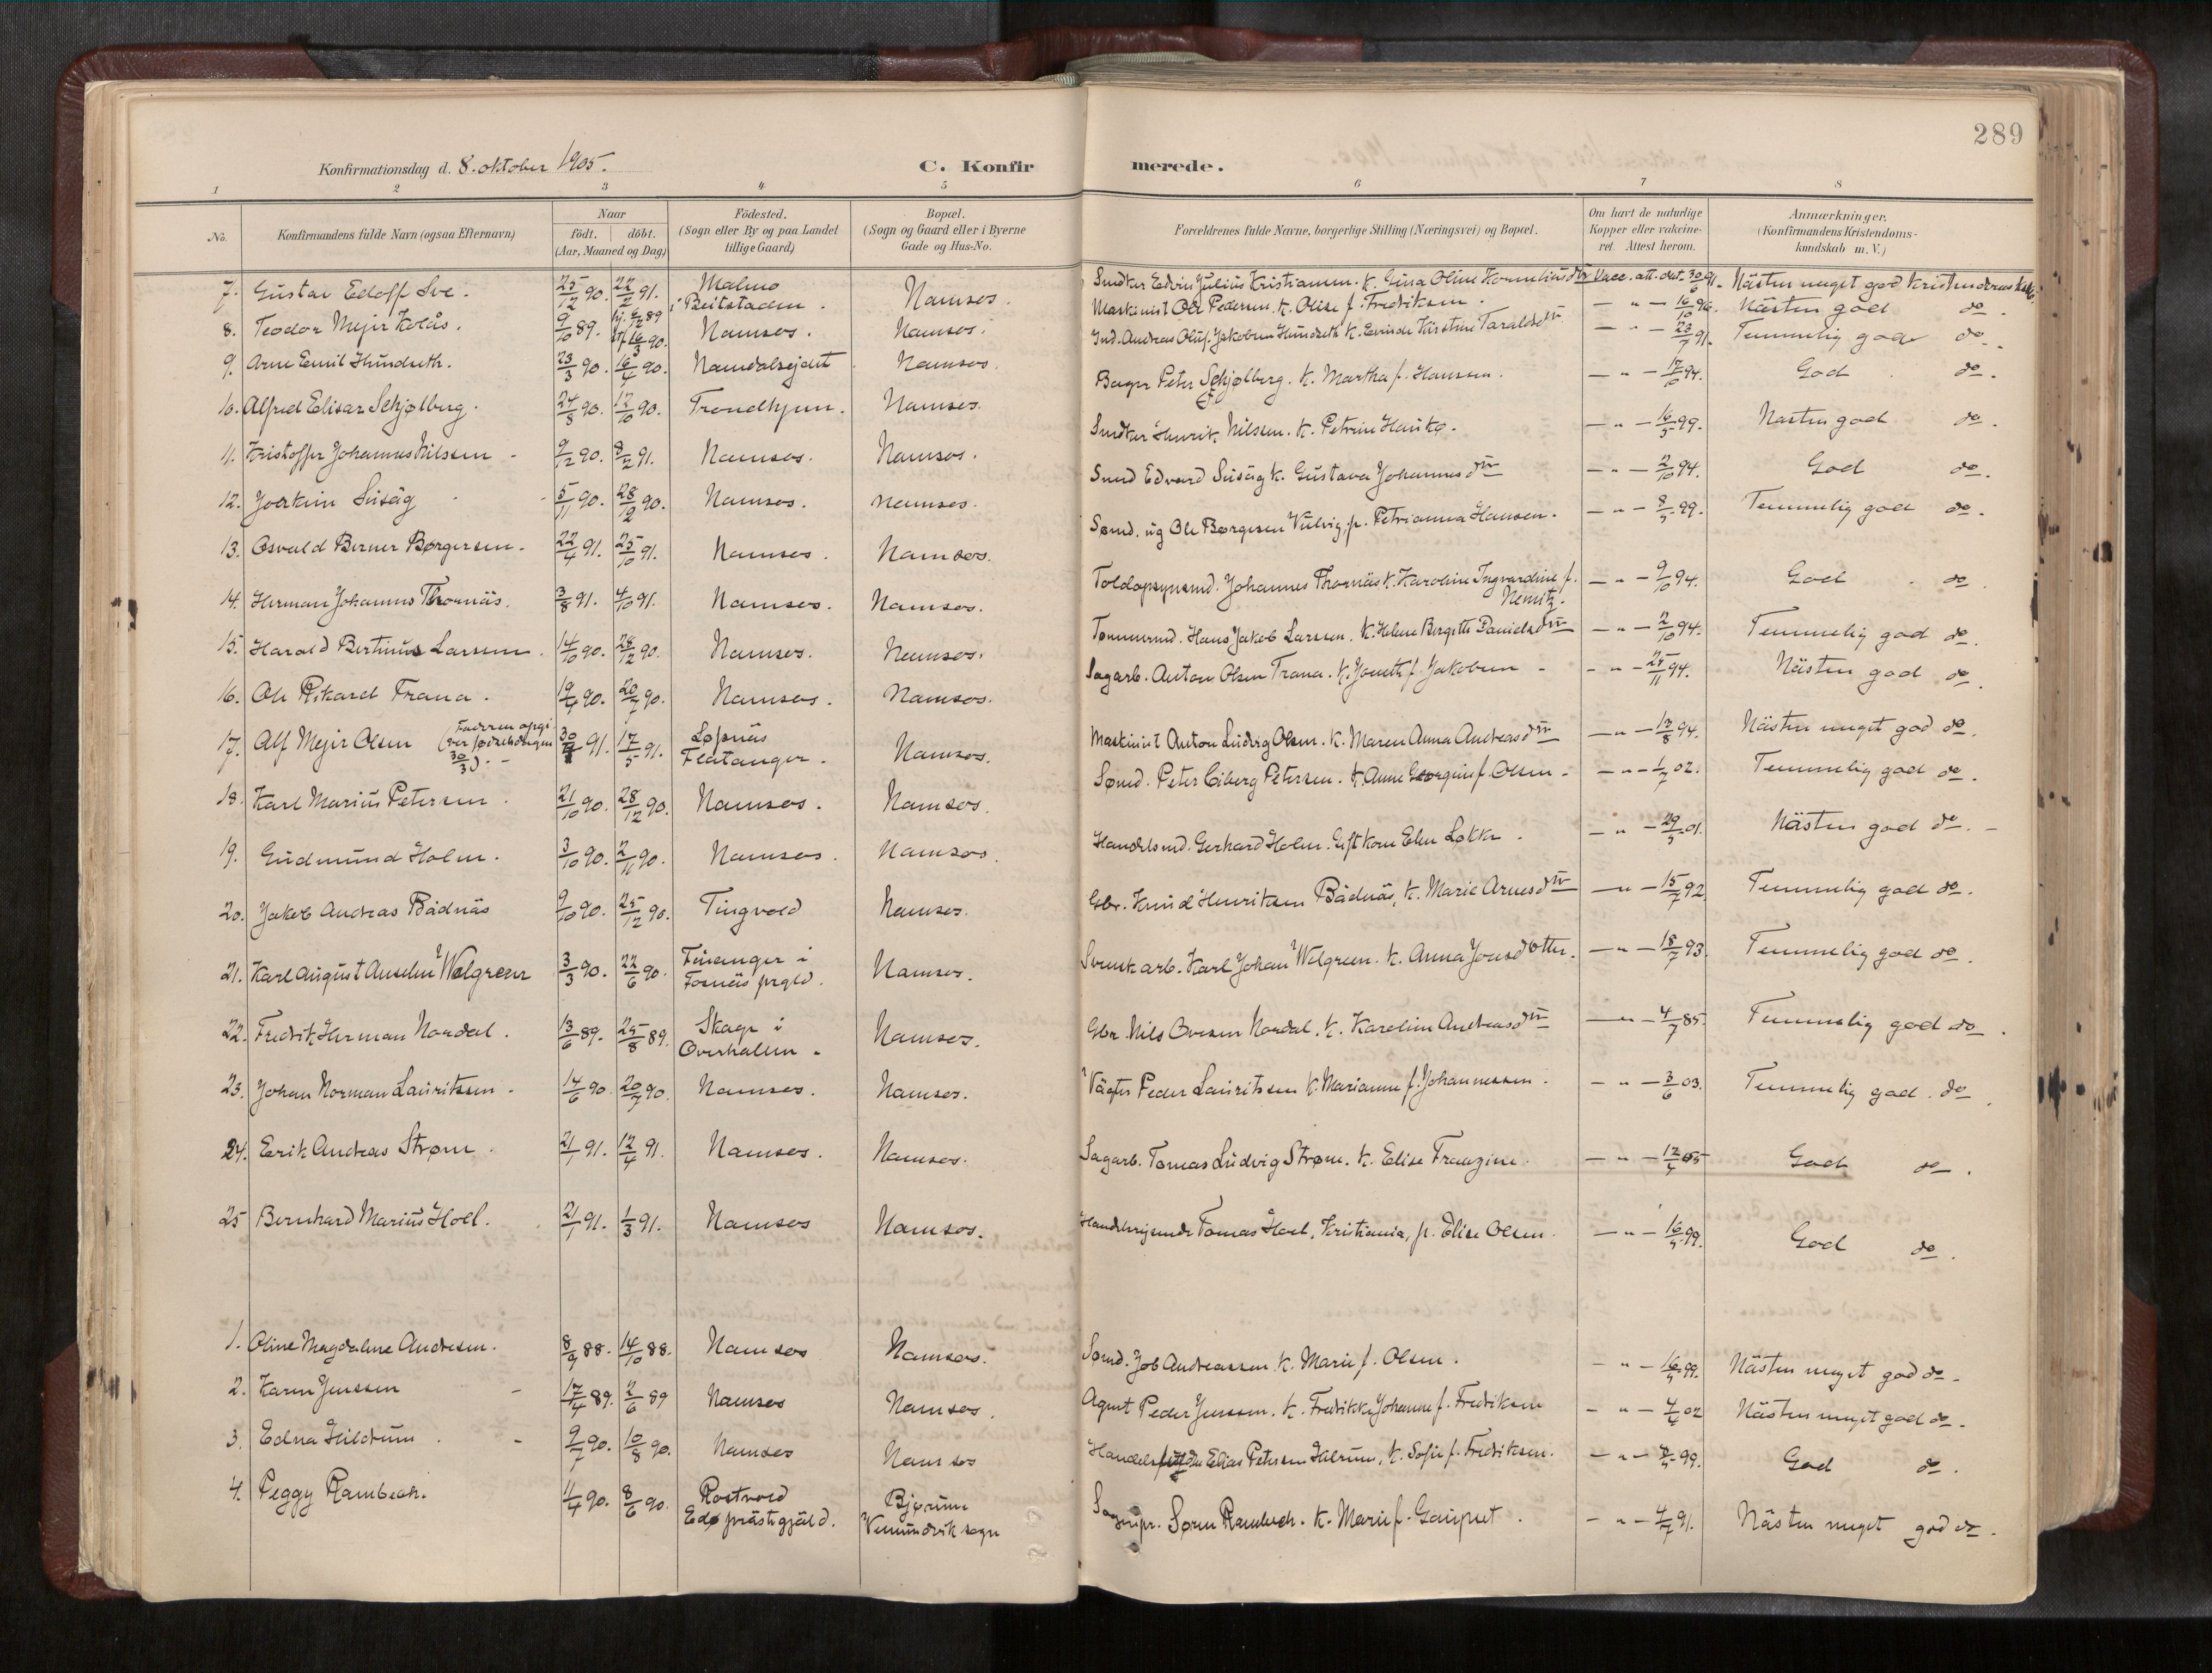 289
Konfirmationsdag d. 8. oktober 1905.
C. Konfirmerede.
1 2 3 4 5 6 7 8
No. Konfirmandens fulde Navn (ogsaa Efternavn) Naar födt. döbt. (Aar, Maaned og Dag) Födested. (Sogn eller By og paa Landet tillige Gaard) Bopæl. (Sogn og Gaard eller i Byerne Gade og Hus-No. Forældrenes fulde Navne, borgerlige Stilling (Næringsvei) og Bopæl. Om havt de naturlige Kopper eller vakcineret. Attest herom. Anmærkninger. (Konfirmandens Kristendomskundskab m. V.)
7. Gustav Edolf Sve. 25/12 90. 22/2 91. Malmo i Beitstaden. Namsos. Smdker Edvin Julius Kristiansen. K. Gina Oline Korneliusdtr Vacc. att. dat. 30/6 91. Nästen meget god Kristendomsk.
8. Teodor Mejer Kolås. 9/10 89. hj. 6/12 89 stf. 16/3 90. Namsos. Namsos. Maskinist Ole Pedersen. K. Olise f. Fredriksen. — " — 16/10 96. Nästen god do.
9. Arne Emil Hundseth. 23/3 90. 16/4 90. Namdalsejdet Namsos. Ind. Andreas Oluf Jakobsen Hundseth K. Evinde Kirstine Taraldsdtr — " — 23/7 91. Temmelig god do.
10. Alfred Elisar Schjølberg. 24/8 90. 12/10 90. Trondhjem. Namsos. Bager Peter Schjølberg. K. Martha f. Hanssen. — " — 17/10 94. God do.
11. Kristoffer Johannes Nilssen 9/12 90. 8/2 91. Namsos. Namsos. Smdker Henrik Nilssen. K. Petrine Hauko. — " — 16/5 99. Nästen god do.
12. Joakim Susåg 5/11 90. 28/12 90. Namsos. Namsos. Smed Edvard Susåg K. Gustava Johannesdtr — " — 2/10 94. God do.
13. Osvald Berner Børgersen. 22/4 91. 25/10 91. Namsos. Namsos. Sømd. ug Ole Børgesen Vulvig, p. Petrianna Hansen. — " — 8/5 99. Temmelig god do.
14. Herman Johannes Thornäs. 3/8 91. 4/10 91. Namsos. Namsos. Toldopsynsmd. Johannes Thornäs K. Karoline Ingvardine f. Nemitz. — " — 9/10 94. God do.
15. Harald Bertinus Larssen. 14/10 90. 28/12 90. Namsos. Namsos. Tømmermd. Hans Jakob Larssen. K. Helene Birgitte Danielsdtr — " — 2/10 94. Temmelig god do.
16. Ole Rikard Trana. 19/4 90. 20/7 90. Namsos. Namsos. Sagarb. Anton Olsen Trana. K. Jonetta f. Jakobsen — " — 25/11 94. Nästen god do.
17. Alf Mejer Olsen (Faderen opgiver fødselsdagen 30/3). 30/4 91. 17/5 91. Løpnäs Flatanger. Namsos. Maskinist Anton Ludvig Olsen. K. Maren Anna Andreasdtr — " — 13/8 94. Nästen meget god do.
18. Karl Marius Petersen. 21/10 90. 28/12 90. Namsos. Namsos. Sømd. Peter Eiberg Petersen. K. Anne Georgine f. Olsen. — " — 1/7 02. Temmelig god do.
19. Gudmund Holm. 3/10 90. 2/11 90. Namsos. Namsos. Handelsmd. Gerhard Holm. Gift kone Elen Løkke. — " — 29/5 01. Nästen god do.
20. Jakob Andreas Bådnäs 9/10 90. 25/12 90. Tingvold Namsos. Gbr. Knud Henriksen Bådnäs, K. Marie Arnesdtr — " — 15/7 92 Temmelig god do.
21. Karl August Anselm Welgreen 3/3 90. 22/6 90. Finanger i Fosnäs prgld. Namsos. Svensk arb. Karl Johan Welgreen. K. Anna Jonsdotter. — " — 18/7 93. Temmelig god do.
22. Fredrik Herman Nordal. 13/6 89. 25/8 89. Skage i Overhallen. Namsos. Gbr. Nils Ovesen Nordal. K. Karoline Andreasdtr — " — 4/7 85. Temmelig god do.
23. Johan Norman Lauritssen. 14/6 90 20/7 90. Namsos. Namsos. Vägter Peder Lauritssen K. Marianne f. Johannessen. — " — 3/6 03. Temmelig god. do.
24. Erik Andreas Strøm. 21/1 91. 12/4 91. Namsos. Namsos. Sagarb. Tomas Ludvig Strøm. K. Elise Franzine. — " — 12/4 05 God do.
25 Bernhard Marius Hoel. 21/1 91. 1/3 91. Namsos Namsos. Handelsrejsende Tomas Hoel, Kristiania, p. Elise Olsen. — " — 16/5 99. God do.
1. Oline Magdalene Andresen. 8/9 88. 14/10 88. Namsos Namsos. Sømd. Job Andreassen. K. Marie f. Olsen. — " — 16/5 99. Nästen meget god do.
2. Karen Jenssen 17/4 89. 2/6 89 Namsos Namsos. Agent Peder Jenssen. K. Fredrikke Johanne f. Fredriksen — " — 4/4 02 Nästen meget god do.
3. Edna Hildrum. 9/7 90. 10/8 90. Namsos Namsos Elias Petersen Hilrum, K. Sofie f. Fredriksen. — " — 99. God do.
4. Peggy Rambech. 11/4 90. 8/6 90. Rostvold Edø prästegjäld. Bjørum Vemundvik sogn Søren Rambech. K. Marie f. Gaupset. — " — 4/7 91. Nästen meget god do.